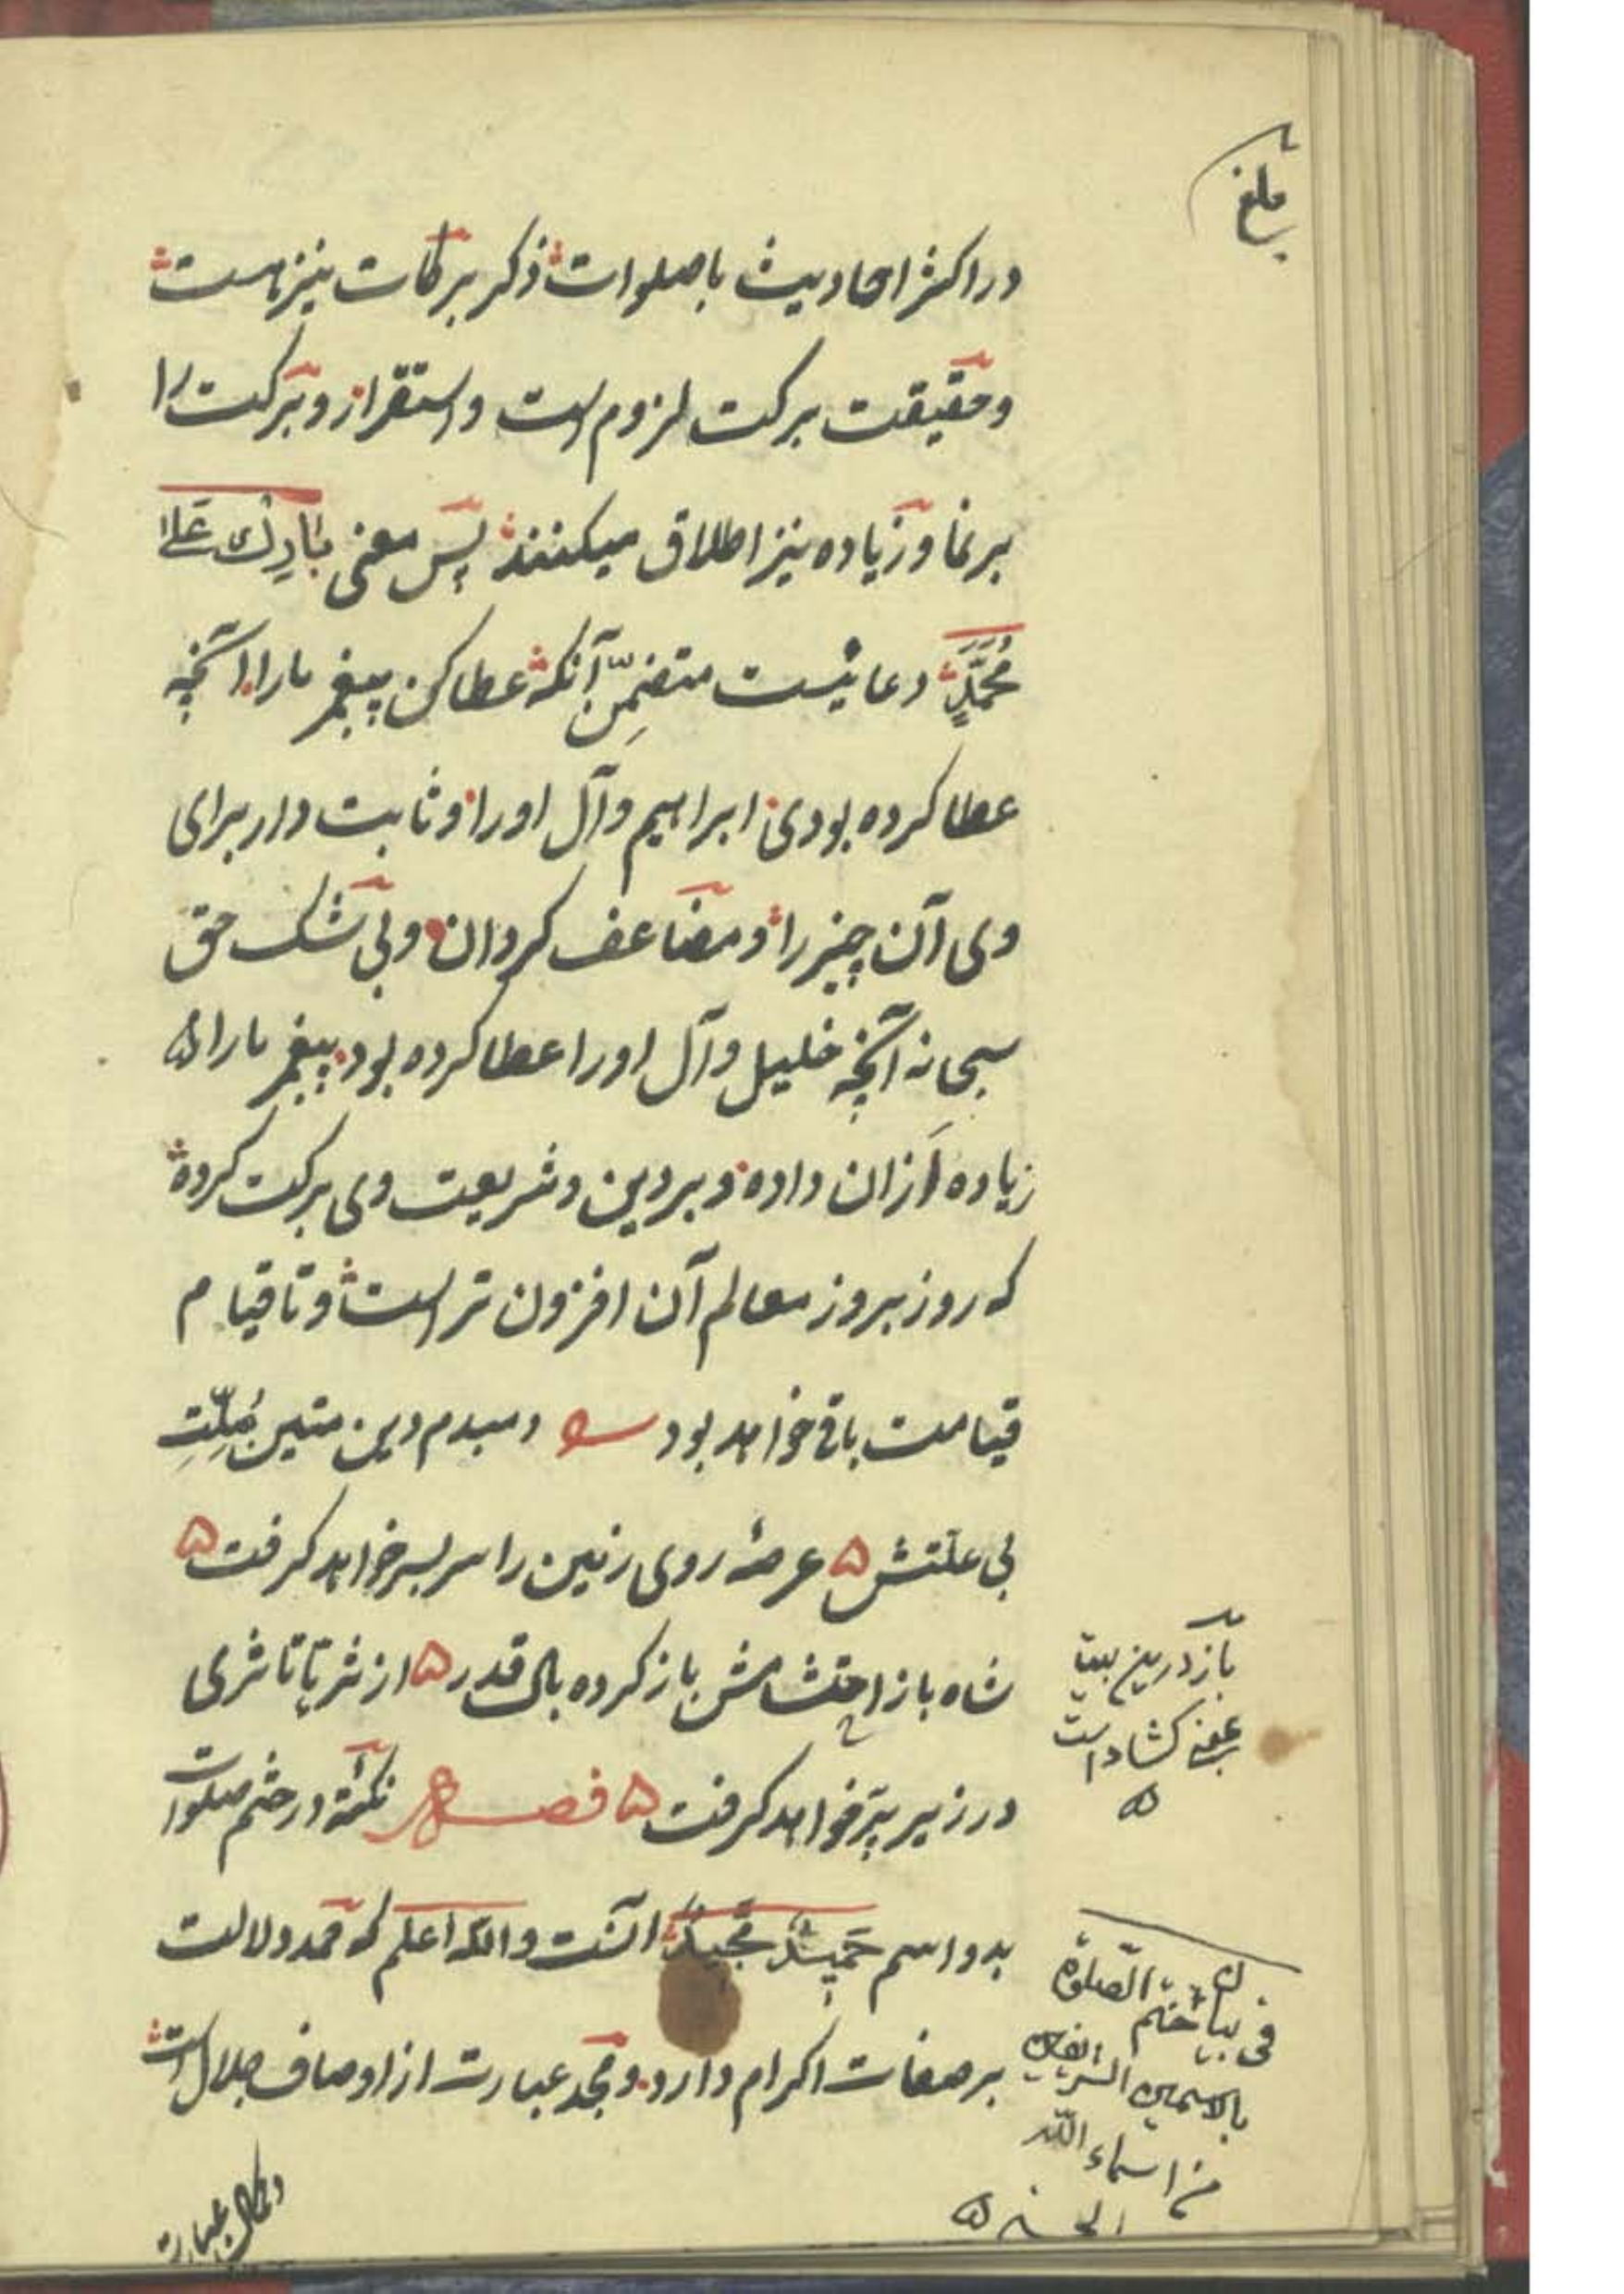 بلغ
در اکثر احادیث با صلوات ذکر برکات نیز هست
و حقیقت برکت لزوم است و استقرار و برکت را
بر نما و زیاده نیز اطلاق میکنند پس معنی بَارِك عَلَی
مُحَمَّدٍ دعائیست متضمِّنِ آنکه عطا کن پیغمبر ما را آنچه
عطا کرده بودی ابراهیم و آل او را و ثابت دار برای
وی آن چیز را و مضاعف کردان و بی شک حق
سبحانه آنچه خلیل و آل او را عطا کرده بود پیغمبر ما را
زیاده اَزان داده و بر دین و شریعت وی برکت کرده
که روز بروز معالم آن افزون تر است و تا قیام
قیامت باقی خواهد بود دمبدم دین متین مُلِّتِ
بی علتش عرصهٔ روی زمین را سربسر خواهد کرفت
شاه باز احتشامش باز کرده بال قدر از ثریا تا ثری
در زیر پر خواهد کرفت فصل نکتهٔ در ختم صلوات
بدو اسم حَمِیدٌ مَجِیدٌ آنست والله اعلم که حمد دلالت
بر صفات اکرام دارد و مجد عبارت از اوصاف جلال است
باز درین بیت
بمعنی کشاد است
فی بیان ختم الصلوة
بالاسمین الشریفین
من اسماء الله
الحسنی
و کمال عبارت